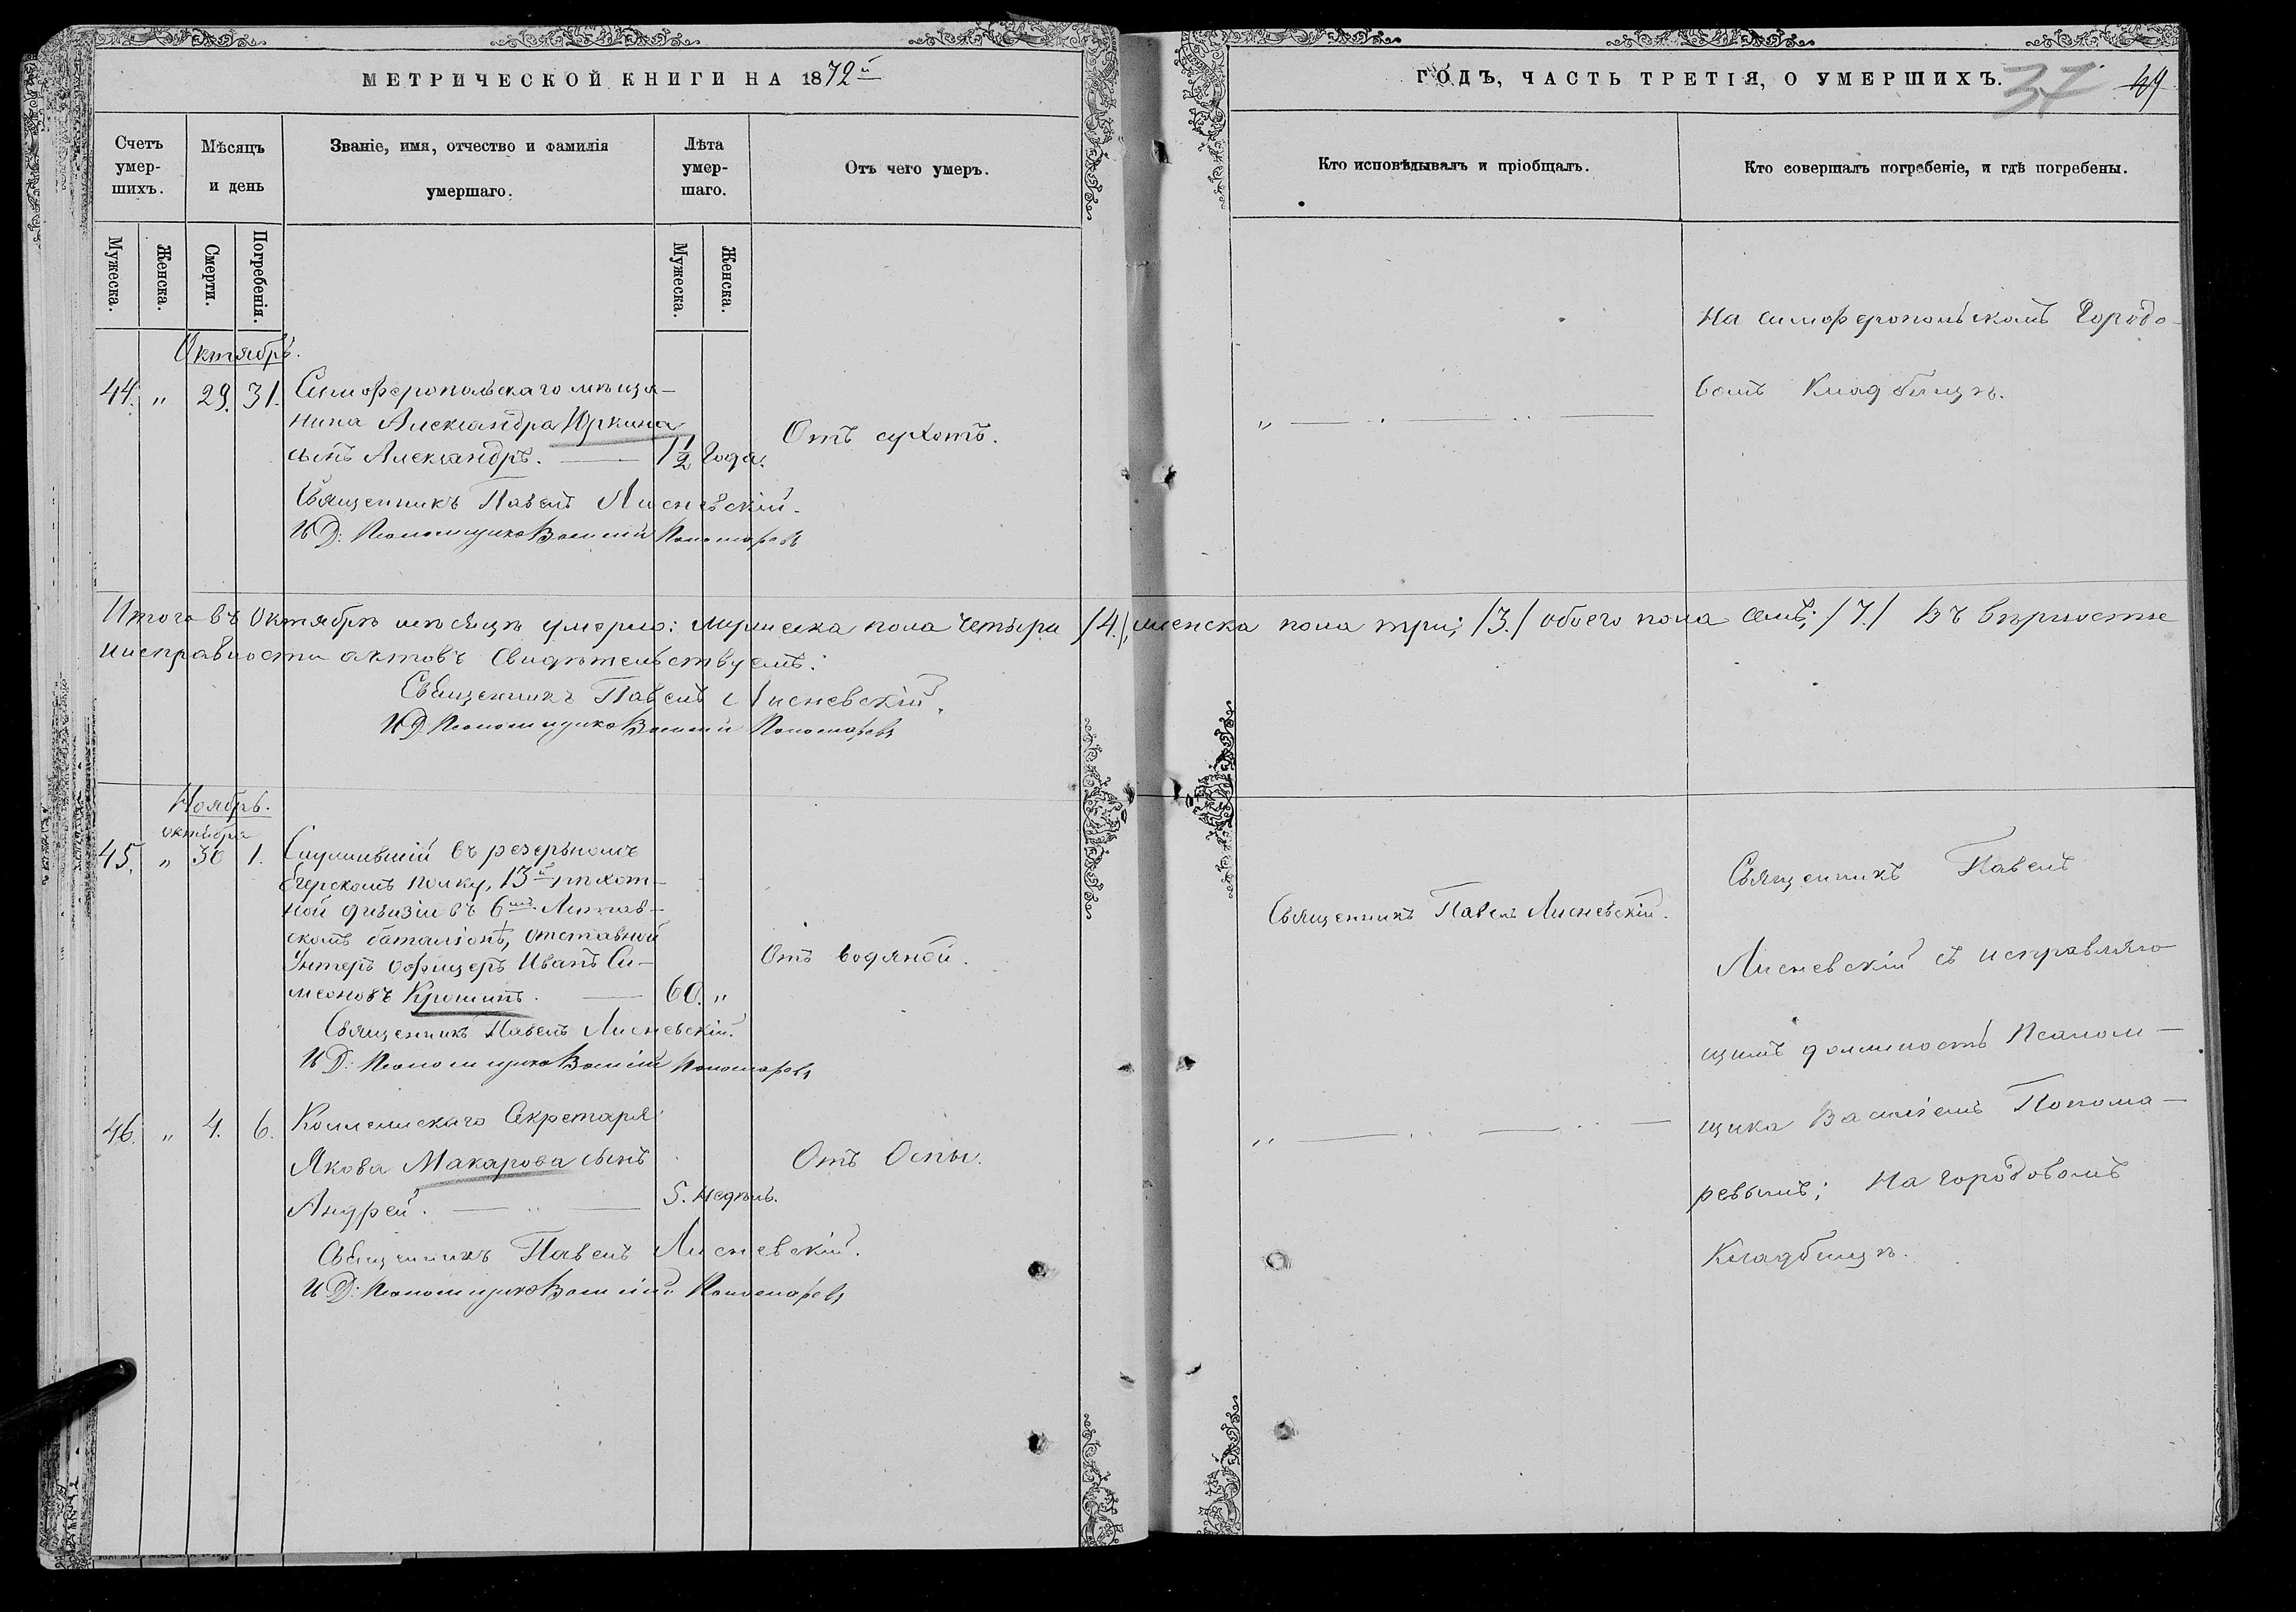 МЕТРИЧЕСКОЙ КНИГИ НА 1872й
ГОДЪ, ЧАСТЬ ТРЕТІЯ, О УМЕРШИХЪ.
37
Счетъ умер-шихъ.
Мѣсяцъ и день
Званіе, имя, отчество и фамилія умершаго.
Лѣта умер-шаго.
Отъ чего умеръ.
Кто исповѣдывалъ и пріобщалъ.
Кто совершалъ погребеніе, и гдѣ погребены.
Мужеска.
Женска.
Смерти.
Погребенія.
Мужеска.
Женска.
Октябрь.
44. „ 29. 31. Симферопольскаго мѣща-
нина Александра Юркина
сынъ Александръ. — 1 1/2 года.
Отъ сухотъ.
Священникъ Павелъ Лисневскій.
И Д: Псаломщика Василій Пономаревъ
„ — .. — .. —
На симферопольскомъ Городо-
вомъ Кладбищѣ.
Итого въ Октябрѣ мѣсяцѣ умерло: мужеска пола четыри /4./, женска пола три; /3./ обоего пола семь; /7./ Въ вѣрности
и исправности актовъ свидѣтельствуемъ:
Священникъ Павелъ Лисневскій.
И Д. Псаломщика Василій Пономаревъ
Ноябрь.
октября
45. „ 30 1. Служившій въ резервномъ
Егерскомъ полку, 13й пѣхот-
ной дивизіи въ 6мъ Литов-
скомъ баталіонѣ, отставной
Унтеръ офицеръ Иванъ Си-
меоновъ Крошинъ. — 60. „
Отъ водяной.
Священникъ Павелъ Лисневскій.
И Д: Псаломщика Василій Пономаревъ
Священникъ Павелъ Лисневскій.
46. „ 4. 6. Коллежскаго Секретаря
Якова Макарова сынъ
Андрей. — .. — 5. недѣль.
Отъ Оспы.
Священникъ Павелъ Лисневскій.
И Д: Псаломщика Василій Пономаревъ
„ — .. — .. —
Священникъ Павелъ
Лисневскій съ исправляю-
щимъ должность Псалом-
щика Василіемъ Понома-
ревымъ; На городовомъ
Кладбищѣ.